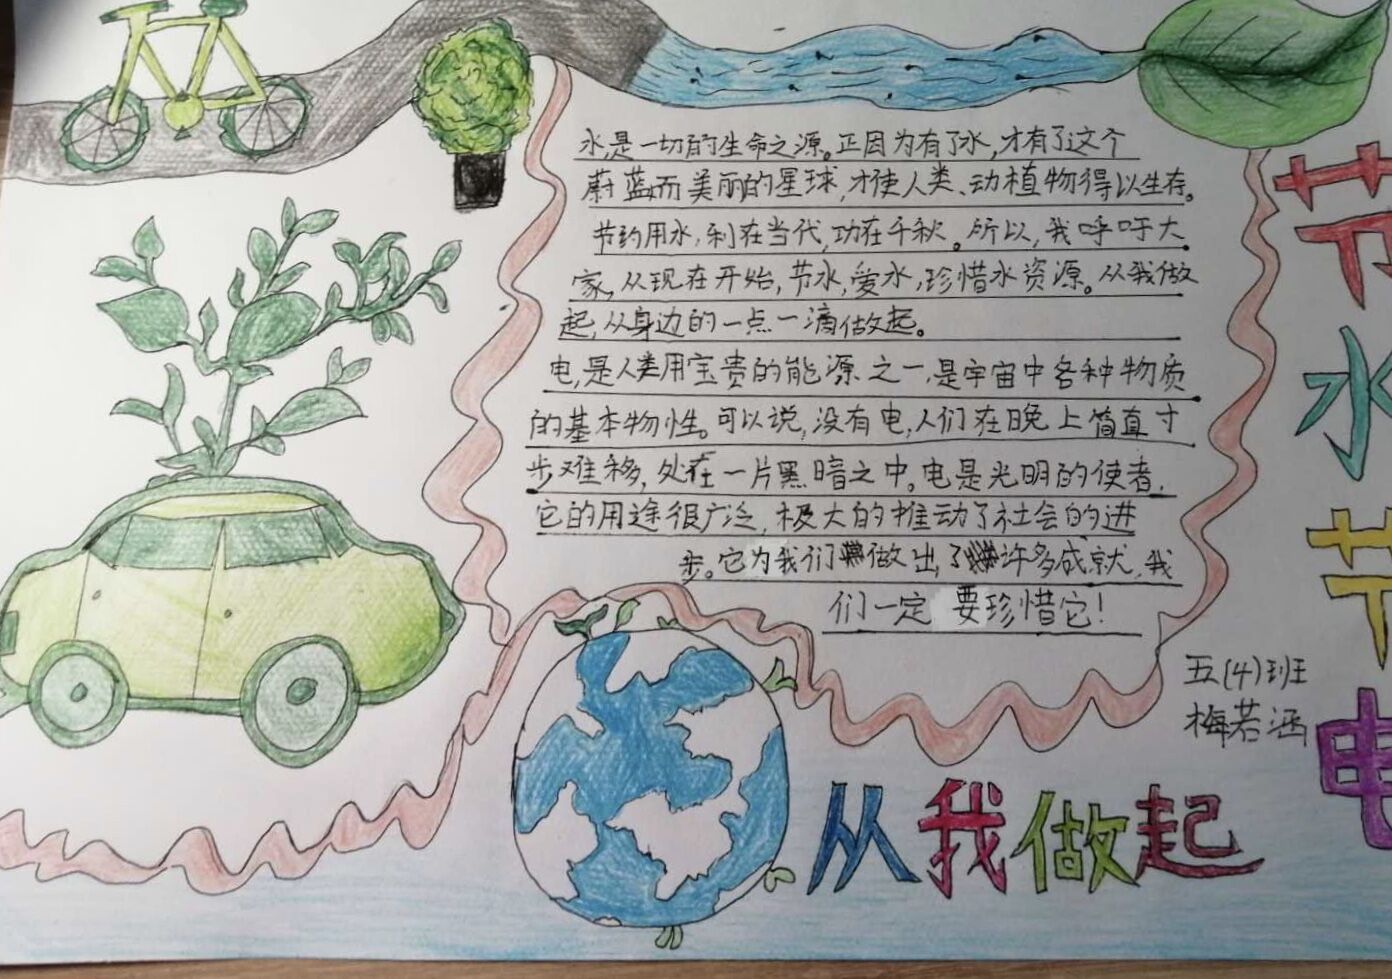 水是一切的生命之源。正因为有了水,才有了这个
蔚蓝而美丽的星球,才使人类、动植物得以生存。
节约用水,利在当代,功在千秋。所以,我呼吁大
家,从现在开始,节水,爱水,珍惜水资源。从我做
起,从身边的一点一滴做起。
电,是人类用宝贵的能源之一,是宇宙中各种物质
的基本物性。可以说,没有电,人们在晚上简直寸
步难移,处在一片黑暗之中。电是光明的使者,
它的用途很广泛,极大的推动了社会的进
步。它为我们做出了许多成就,我
们一定要珍惜它!
五(4)班
梅若涵
节水节电
从我做起